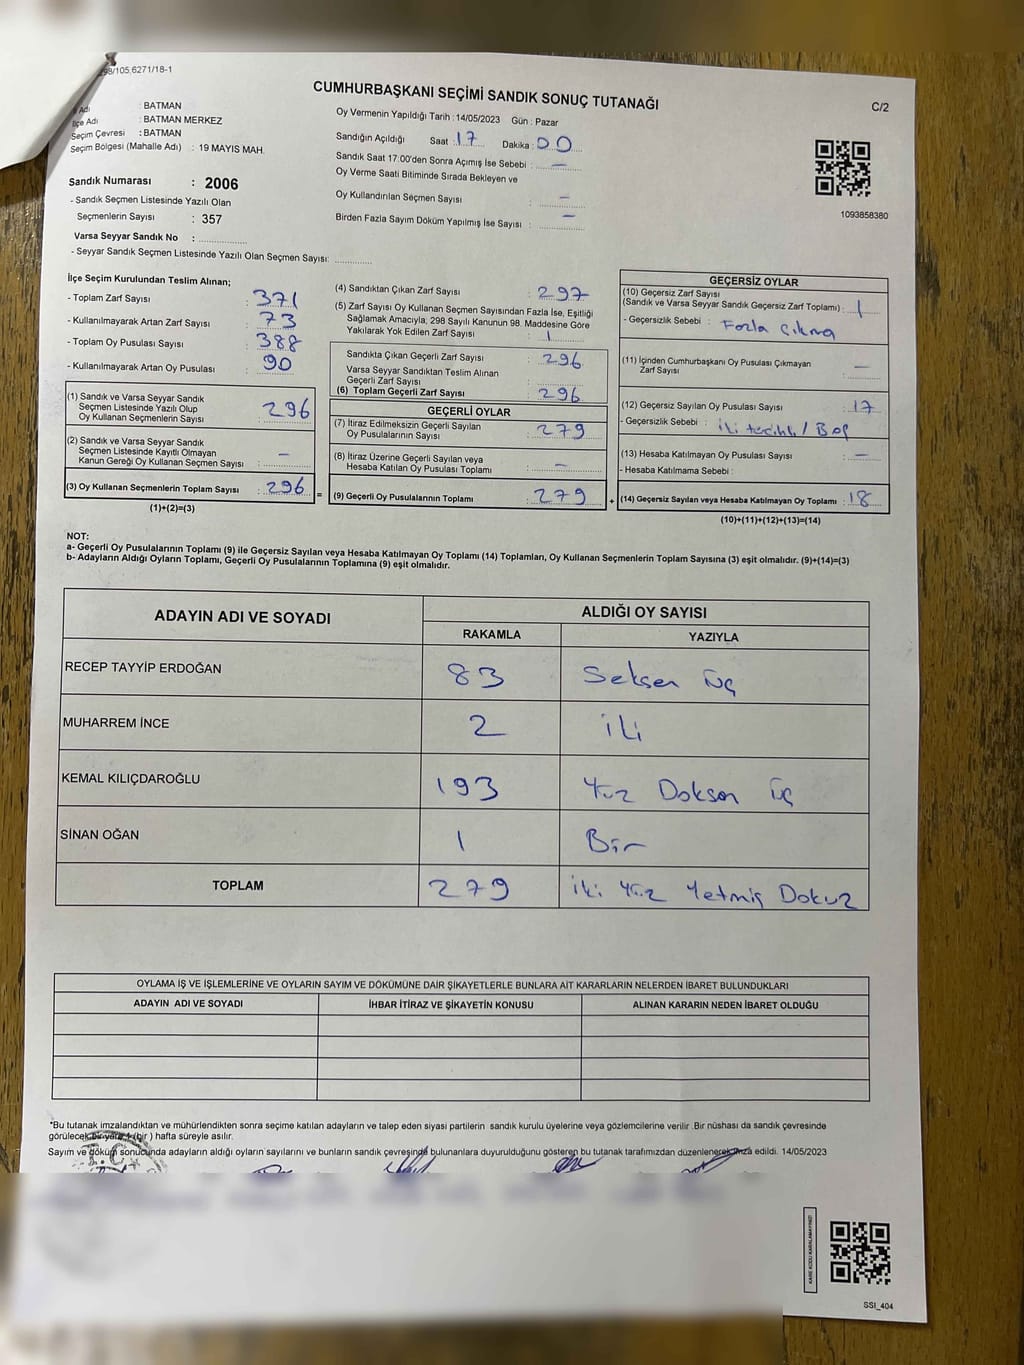 298/105,6271/18-1
CUMHURBAŞKANI SEÇİMİ SANDIK SONUÇ TUTANAĞI
C/2
Adı : BATMAN
İlçe Adı : BATMAN MERKEZ
Seçim Çevresi : BATMAN
Seçim Bölgesi (Mahalle Adı) : 19 MAYIS MAH.
Sandık Numarası : 2006
- Sandık Seçmen Listesinde Yazılı Olan
Seçmenlerin Sayısı : 357
Varsa Seyyar Sandık No :
- Seyyar Sandık Seçmen Listesinde Yazılı Olan Seçmen Sayısı:
Oy Vermenin Yapıldığı Tarih : 14/05/2023 Gün : Pazar
Sandığın Açıldığı Saat : 17 Dakika : 00
Sandık Saat 17:00'den Sonra Açımış İse Sebebi : -
Oy Verme Saati Bitiminde Sırada Bekleyen ve
Oy Kullandırılan Seçmen Sayısı : -
Birden Fazla Sayım Döküm Yapılmış İse Sayısı : -
1093858380
İlçe Seçim Kurulundan Teslim Alınan;
- Toplam Zarf Sayısı : 371
- Kullanılmayarak Artan Zarf Sayısı : 73
- Toplam Oy Pusulası Sayısı : 388
- Kullanılmayarak Artan Oy Pusulası : 90
(1) Sandık ve Varsa Seyyar Sandık
Seçmen Listesinde Yazılı Olup
Oy Kullanan Seçmenlerin Sayısı : 296
(2) Sandık ve Varsa Seyyar Sandık
Seçmen Listesinde Kayıtlı Olmayan
Kanun Gereği Oy Kullanan Seçmen Sayısı : -
(3) Oy Kullanan Seçmenlerin Toplam Sayısı : 296
(1)+(2)=(3)
(4) Sandıktan Çıkan Zarf Sayısı : 297
(5) Zarf Sayısı Oy Kullanan Seçmen Sayısından Fazla İse, Eşitliği
Sağlamak Amacıyla, 298 Sayılı Kanunun 98. Maddesine Göre
Yakılarak Yok Edilen Zarf Sayısı : 1
Sandıkta Çıkan Geçerli Zarf Sayısı : 296
Varsa Seyyar Sandıktan Teslim Alınan
Geçerli Zarf Sayısı :
(6) Toplam Geçerli Zarf Sayısı : 296
GEÇERLİ OYLAR
(7) İtiraz Edilmeksizin Geçerli Sayılan
Oy Pusulalarının Sayısı : 279
(8) İtiraz Üzerine Geçerli Sayılan veya
Hesaba Katılan Oy Pusulası Toplamı : -
= (9) Geçerli Oy Pusulalarının Toplamı : 279 +
GEÇERSİZ OYLAR
(10) Geçersiz Zarf Sayısı
(Sandık ve Varsa Seyyar Sandık Geçersiz Zarf Toplamı) : 1
- Geçersizlik Sebebi : Fazla Çıkma
(11) İçinden Cumhurbaşkanı Oy Pusulası Çıkmayan
Zarf Sayısı : -
(12) Geçersiz Sayılan Oy Pusulası Sayısı : 17
- Geçersizlik Sebebi : iki tercihli / Boş
(13) Hesaba Katılmayan Oy Pusulası Sayısı : -
- Hesaba Katılmama Sebebi :
(14) Geçersiz Sayılan veya Hesaba Katılmayan Oy Toplamı : 18
(10)+(11)+(12)+(13)=(14)
NOT:
a- Geçerli Oy Pusulalarının Toplamı (9) ile Geçersiz Sayılan veya Hesaba Katılmayan Oy Toplamı (14) Toplamları, Oy Kullanan Seçmenlerin Toplam Sayısına (3) eşit olmalıdır. (9)+(14)=(3)
b- Adayların Aldığı Oyların Toplamı, Geçerli Oy Pusulalarının Toplamına (9) eşit olmalıdır.
ADAYIN ADI VE SOYADI ALDIĞI OY SAYISI
RAKAMLA YAZIYLA
RECEP TAYYİP ERDOĞAN 83 Seksen üç
MUHARREM İNCE 2 iki
KEMAL KILIÇDAROĞLU 193 Yüz Doksan üç
SİNAN OĞAN 1 Bir
TOPLAM 279 iki Yüz Yetmiş Dokuz
OYLAMA İŞ VE İŞLEMLERİNE VE OYLARIN SAYIM VE DÖKÜMÜNE DAİR ŞİKAYETLERLE BUNLARA AİT KARARLARIN NELERDEN İBARET BULUNDUKLARI
ADAYIN ADI VE SOYADI İHBAR İTİRAZ VE ŞİKAYETİN KONUSU ALINAN KARARIN NEDEN İBARET OLDUĞU
*Bu tutanak imzalandıktan ve mühürlendikten sonra seçime katılan adayların ve talep eden siyasi partilerin sandık kurulu üyelerine veya gözlemcilerine verilir .Bir nüshası da sandık çevresinde
görülecek bir yere 1 (bir ) hafta süreyle asılır.
Sayım ve döküm sonucunda adayların aldığı oyların sayılarını ve bunların sandık çevresinde bulunanlara duyurulduğunu gösteren bu tutanak tarafımızdan düzenlenerek imza edildi. 14/05/2023
T.C.
KARE KODU KARALAMAYINIZ!
SSI_404